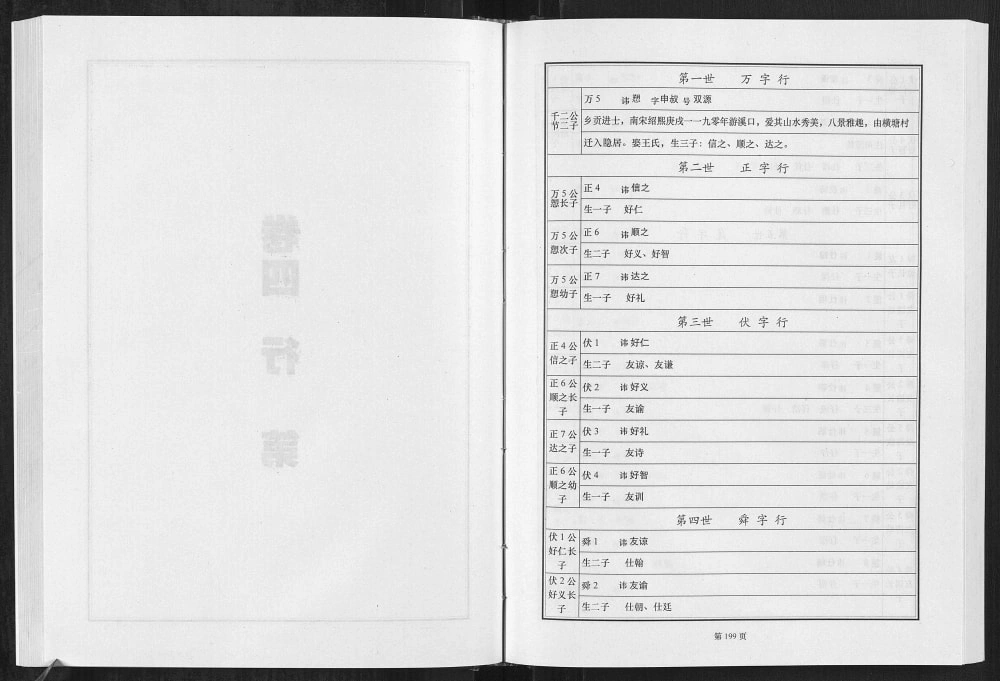 第一世 万字行
千二公节二子
万5 讳愬 字申叔 号双源
乡贡进士，南宋绍熙庚戌一一九零年游溪口，爱其山水秀美，八景雅趣，由横塘村
迁入隐居。娶王氏，生三子：信之、顺之、达之。
第二世 正字行
万5公愬长子
正4 讳信之
生一子 好仁
万5公愬次子
正6 讳顺之
生二子 好义、好智
万5公愬幼子
正7 讳达之
生一子 好礼
第三世 伏字行
正4公信之子
伏1 讳好仁
生二子 友谅、友谦
正6公顺之长子
伏2 讳好义
生一子 友谕
正7公达之子
伏3 讳好礼
生一子 友诗
正6公顺之幼子
伏4 讳好智
生一子 友训
第四世 舜字行
伏1公好仁长子
舜1 讳友谅
生二子 仕翰
伏2公好义长子
舜2 讳友谕
生二子 仕朝、仕廷
第199页